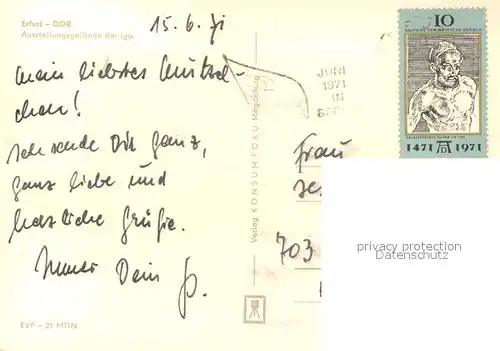 Erfurt – DDR
Ausstellungsgelände der iga
15.6.71
mein liebstes Mutzel-
chen!
ich sende Dir ganz,
ganz liebe und
herzliche Grüße.
Immer Dein
EVP – 21 MDN
Verlag KONSUMFOKU Magdeburg
JUNI
1971
IN
10
DEUTSCHE DEMOKRATISCHE REPUBLIK
1471 AD 1971
Frau
703
privacy protection
Datenschutz